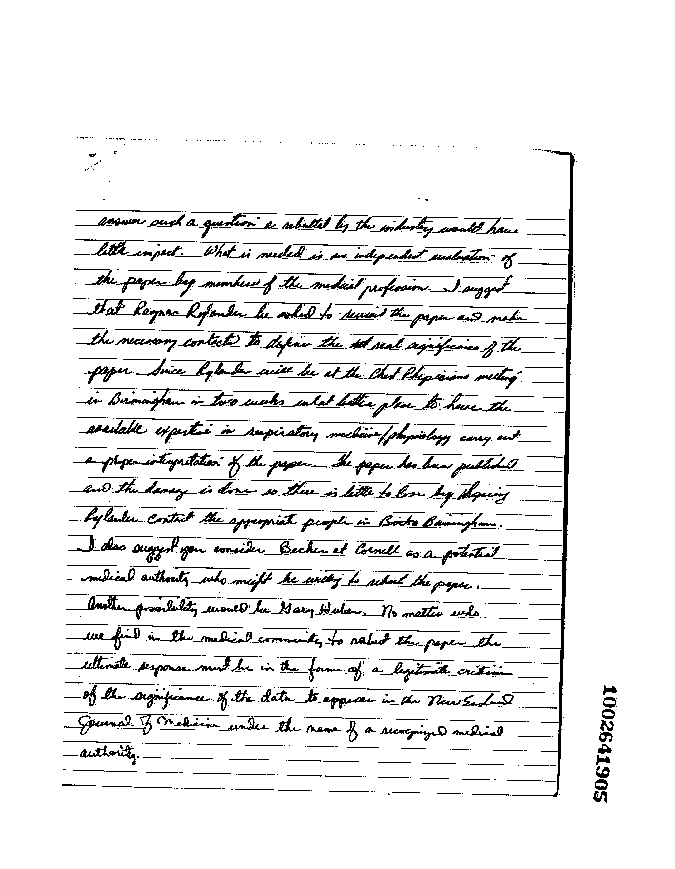 answer such a question a rebuttal by the industry would have
little impact. What is needed is an independent evaluation of
the paper by members of the medical profession. I suggest
that Ragnar Rylander be asked to review the paper and make
the necessary contacts to define the real significance of the
paper. Since Rylander will be at the Chest Physicians meeting
in Birmingham in two weeks what better place to have the
available expertise in respiratory medicine/physiology carry out
a proper interpretation of the paper. The paper has been published
and the damage is done so there is little to lose by
Rylander contact the appropriate people in Birmingham.
I also suggest you consider Becker at Cornell as a potential
medical authority who might be willing to rebut the paper.
Another possibility would be Gary Huber. No matter who
we find in the medical community to rebut the paper the
ultimate response must be in the form of a legitimate criticism
of the significance of the data to appear in the New England
Journal of Medicine under the name of a recognized medical
authority.
1002641905